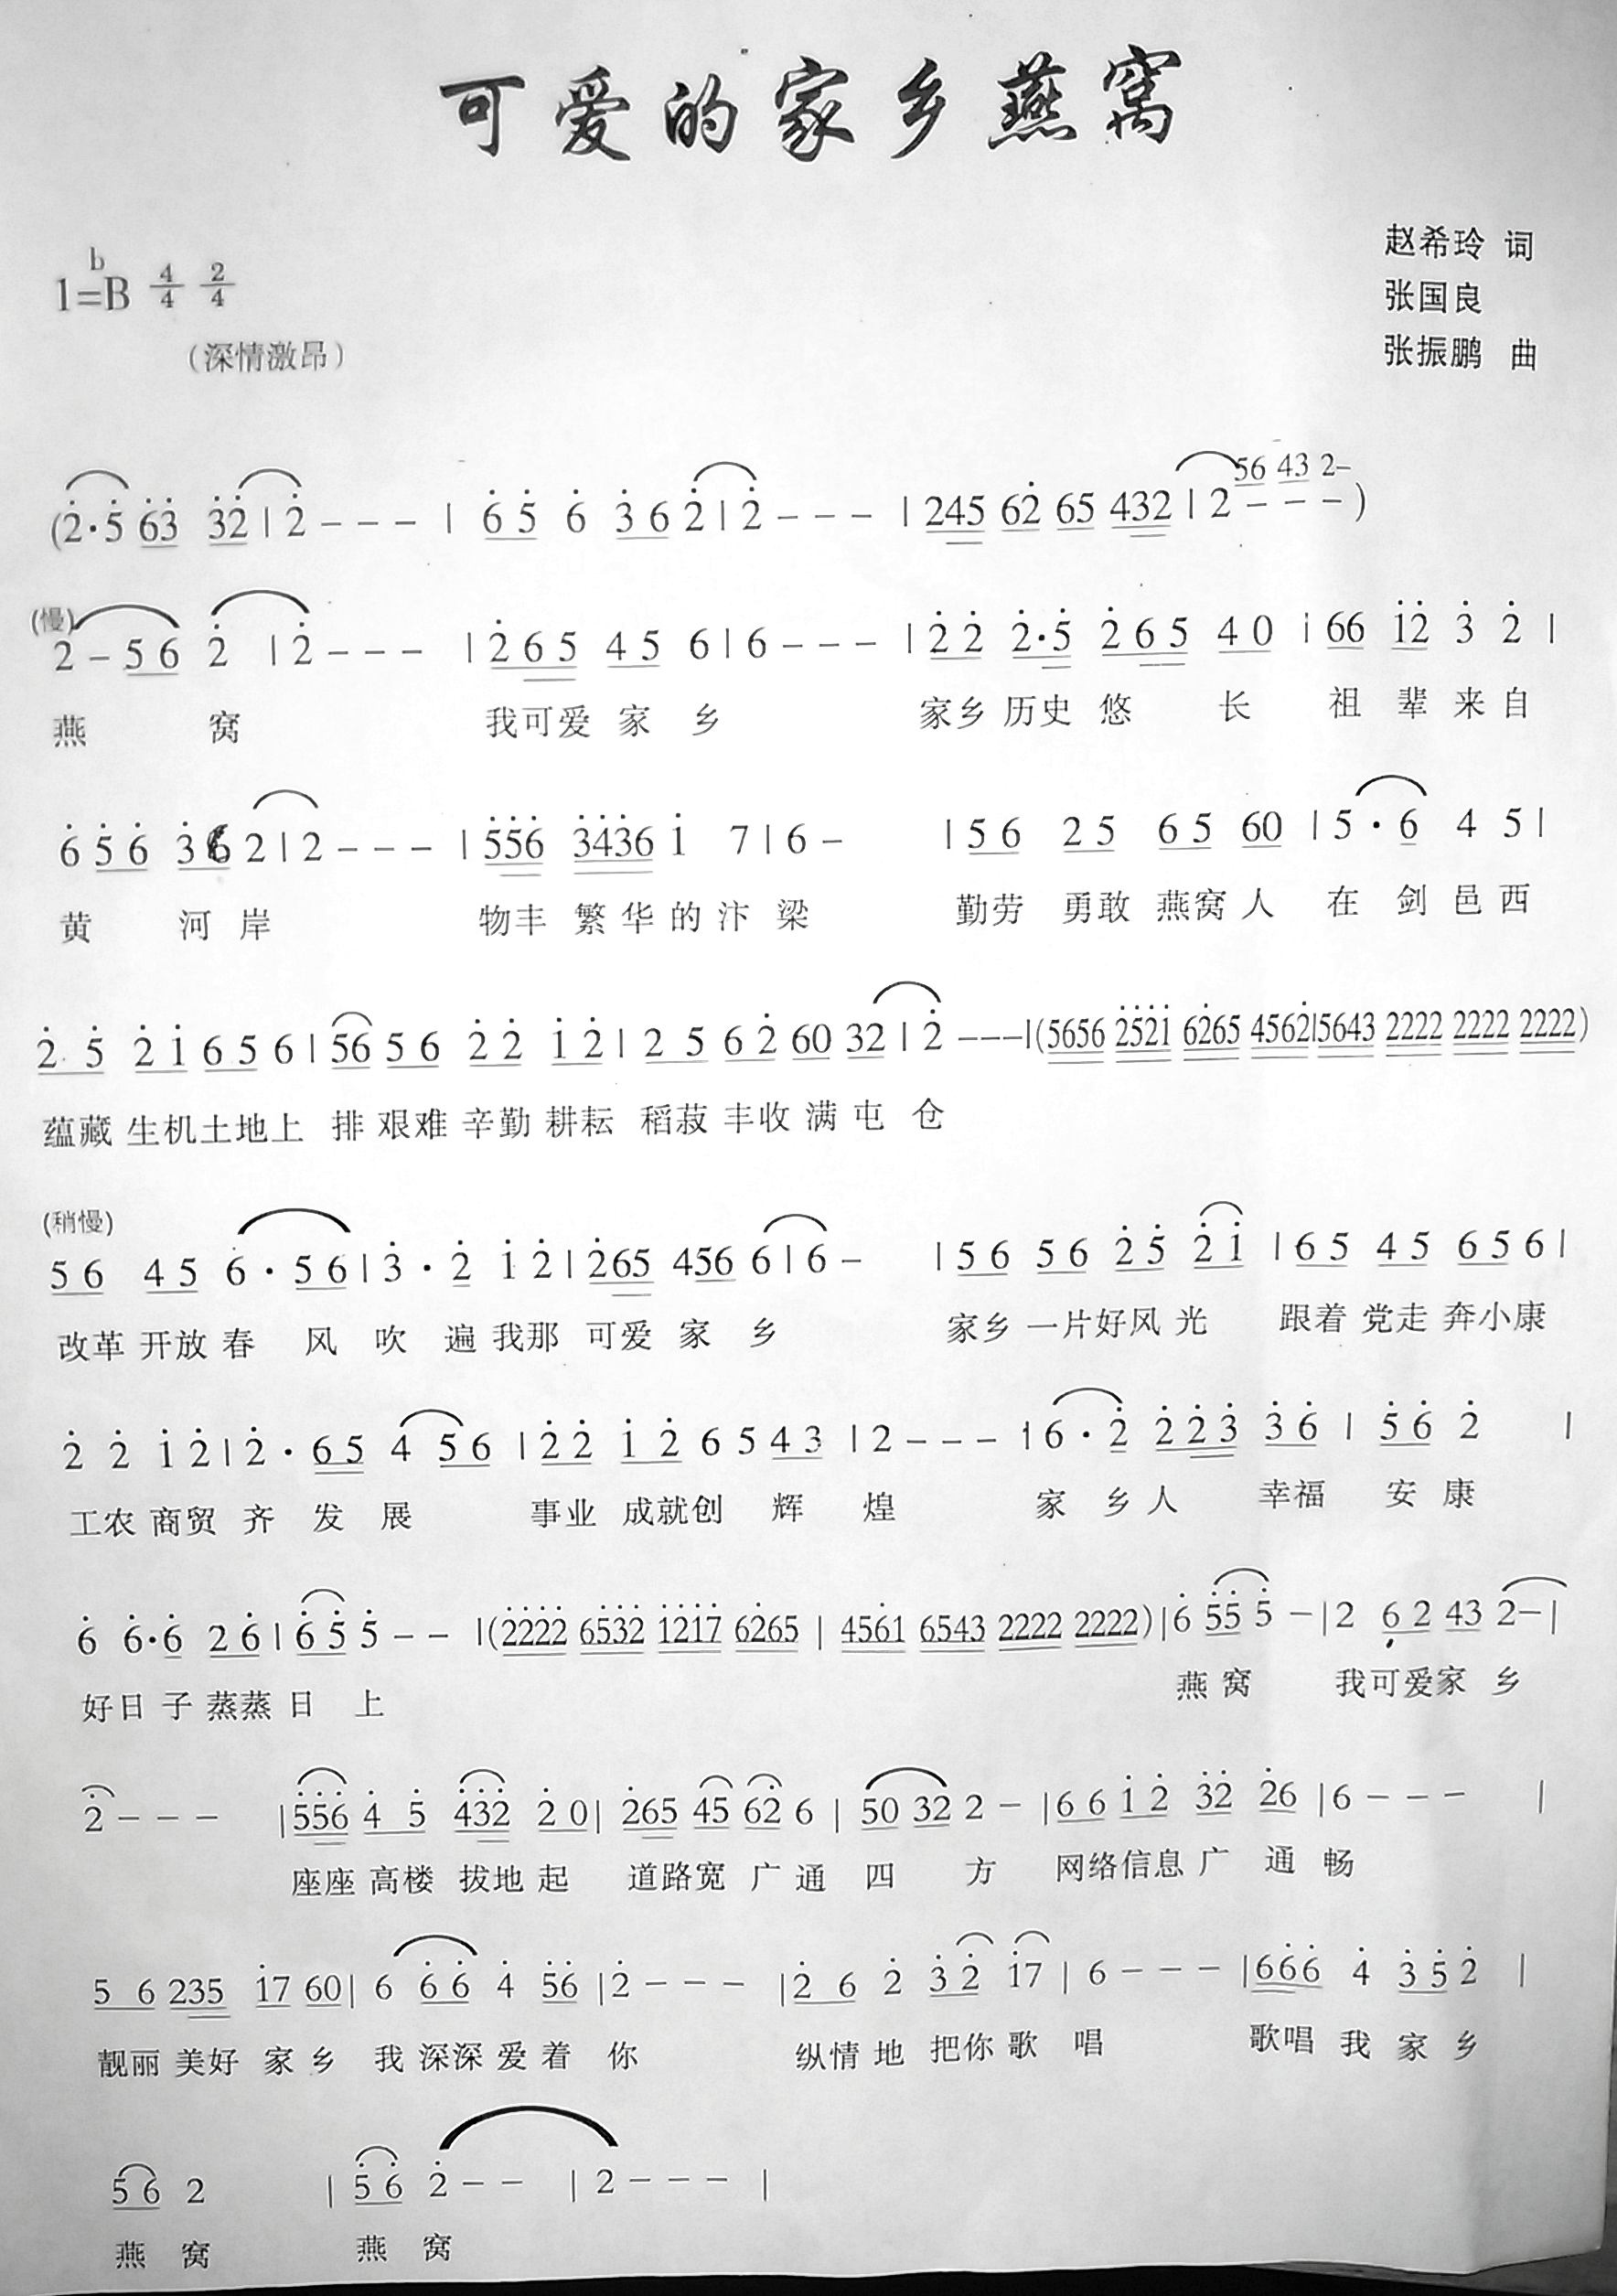 可爱的家乡燕窝
1=ᵇB 4/4 2/4
赵希玲 词
张国良
(深情激昂)
张振鹏 曲
56 43 2-
(2·5 63 32|2 - - - | 65 6 36 2|2 - - - | 245 62 65 432|2 - - - )
(慢)
2 - 56 2 |2 - - - | 265 45 6|6 - - - | 22 2·5 265 40 | 66 12 3 2 |
燕 窝 我可爱 家 乡 家乡 历史 悠 长 祖 辈 来 自
6 56 36 2|2 - - - | 556 3436 1 7|6 - | 56 25 65 60 | 5·6 4 5 |
黄 河 岸 物丰 繁 华 的 汴 梁 勤劳 勇敢 燕窝 人 在 剑 邑 西
25 21 65 6| 56 56 22 12| 25 62 60 32 | 2 ---|(5656 2521 6265 4562|5643 2222 2222 2222)
蕴藏 生机土地上 排 艰难 辛勤 耕耘 稻菽 丰收 满 屯 仓
(稍慢)
56 45 6·56|3·2 12|265 456 6|6 - | 56 56 25 21 | 65 45 656|
改革 开放 春 风 吹 遍 我那 可爱 家 乡 家乡 一片好风 光 跟着 党走 奔小康
2 2 12|2·65 4 56 | 22 12 6543 | 2 - - - | 6·2 223 36 | 56 2 |
工农 商贸 齐 发 展 事业 成就创 辉 煌 家 乡 人 幸福 安 康
6 6·6 26|65 5 - - |(2222 6532 1217 6265 | 4561 6543 2222 2222)|6 55 5 -|2 62 43 2-|
好日 子 蒸蒸 日 上 燕 窝 我可爱家 乡
2 - - - |556 4 5 432 20| 265 45 62 6 | 50 32 2 - |66 12 32 26 |6 - - - |
座座 高楼 拔地 起 道路宽 广 通 四 方 网络信息 广 通 畅
56 235 17 60| 6 66 4 56 |2 - - - |26 2 32 17 | 6 - - - |666 4 352 |
靓丽 美好 家 乡 我 深深 爱 着 你 纵情 地 把你 歌 唱 歌唱 我 家 乡
56 2 | 56 2 - - | 2 - - - |
燕 窝 燕 窝